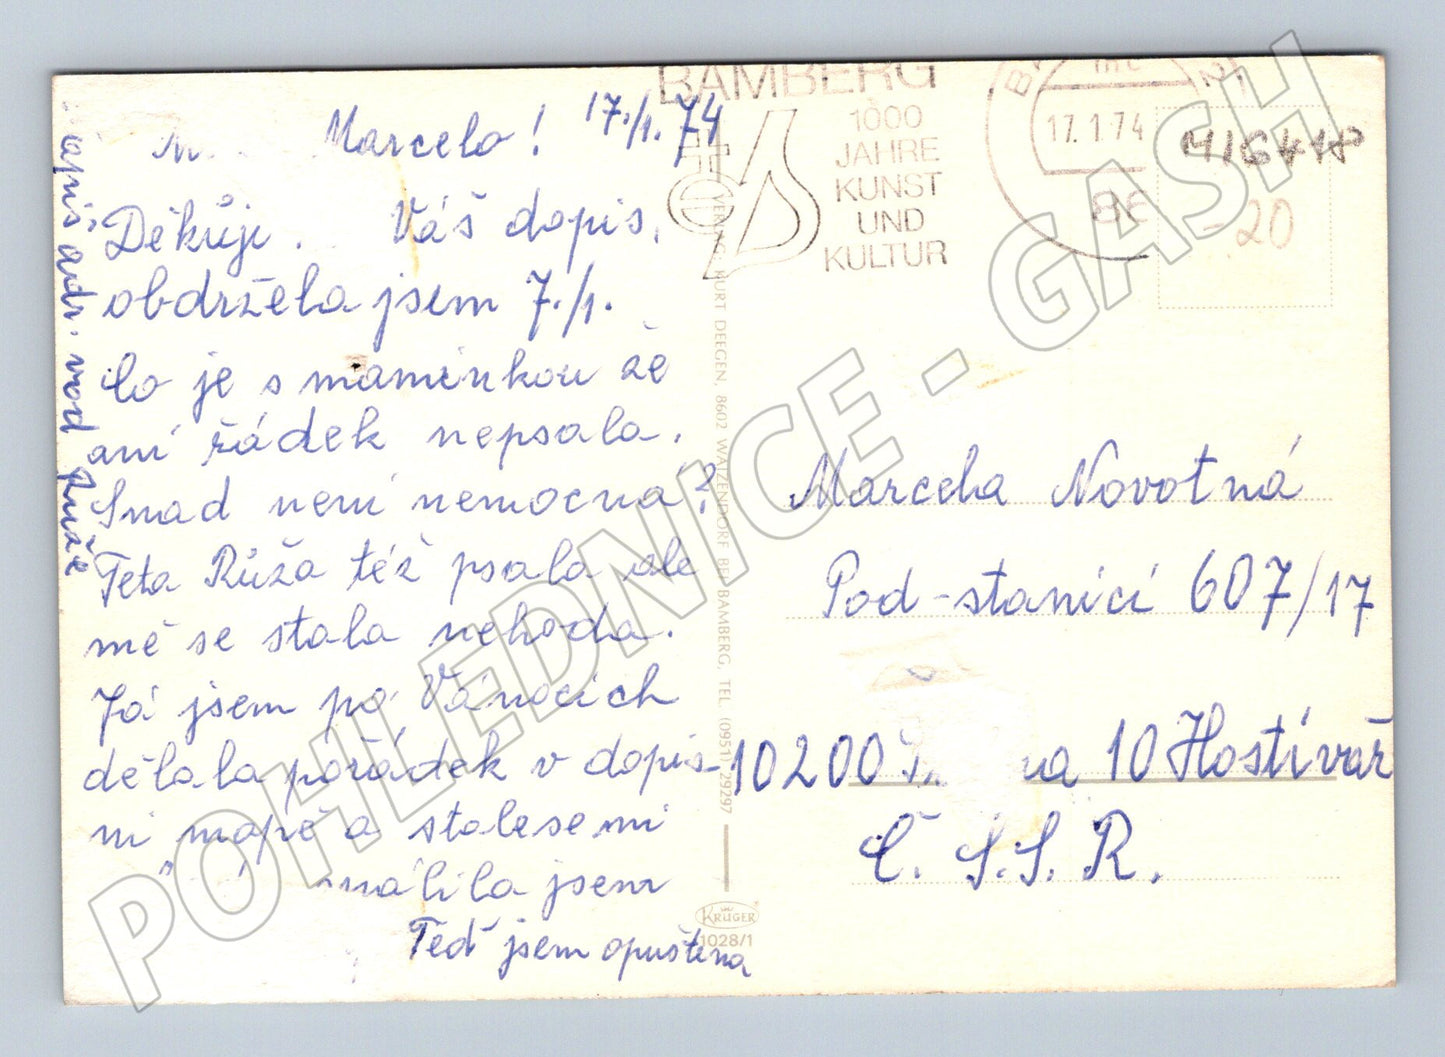 Marcelo! 17./1. 74
Děkuji Váš dopis,
obdržela jsem 7./1.
Co je s maminkou že
ani řádek nepsala.
Snad není nemocná?
Teta Růža též psala ale
mě se stala nehoda.
Já jsem po Vánocich
dělala pořádek v dopis-
ni mapě a stalesemi
jsem
Teď jsem opuštěna
adr.
BAMBERG
1000
JAHRE
KUNST
UND
KULTUR
17.1.74
MIG418
-20
VERLAG: KURT DEEGEN, 8602 WAIZENDORF BEI BAMBERG, TEL. (0951) 29297
KRÜGER
1028/1
Marcela Novotná
Pod-stanicí 607/17
10200 10 Hostivař
Č.S.S.R.
POHLEDNICE - GASH